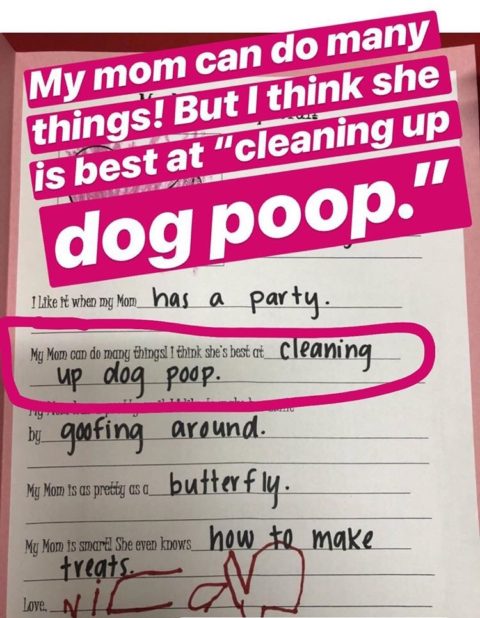 My mom can do many
things! But I think she
is best at "cleaning up
dog poop."
I Like it when my Mom has a party.
My Mom can do many things! I think she's best at cleaning
up dog poop.
by goofing around.
My Mom is as pretty as a butterfly.
My Mom is smart! She even knows how to make
treats.
Love,